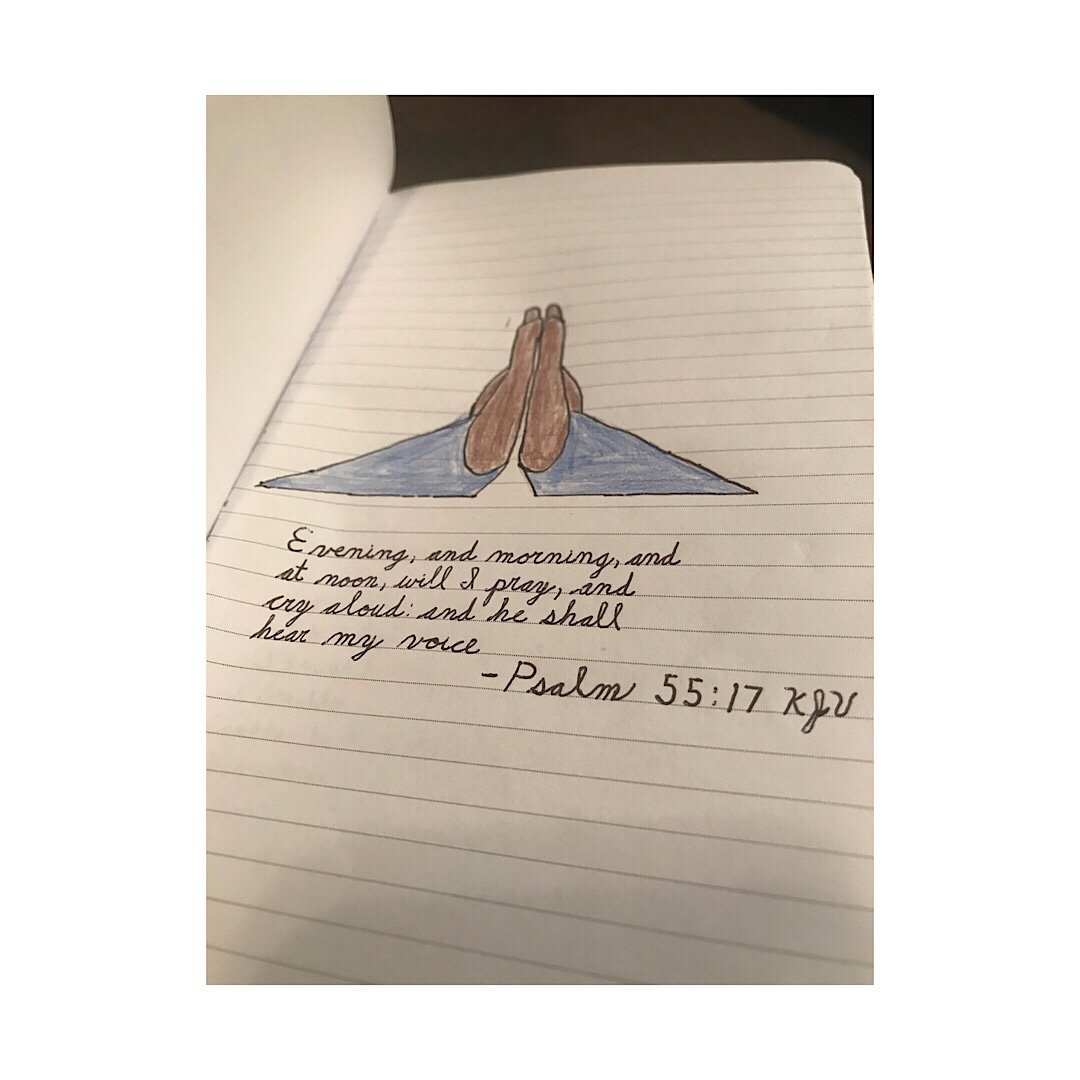 Evening, and morning, and
at noon, will I pray, and
cry aloud: and he shall
hear my voice
-Psalm 55:17 KJV